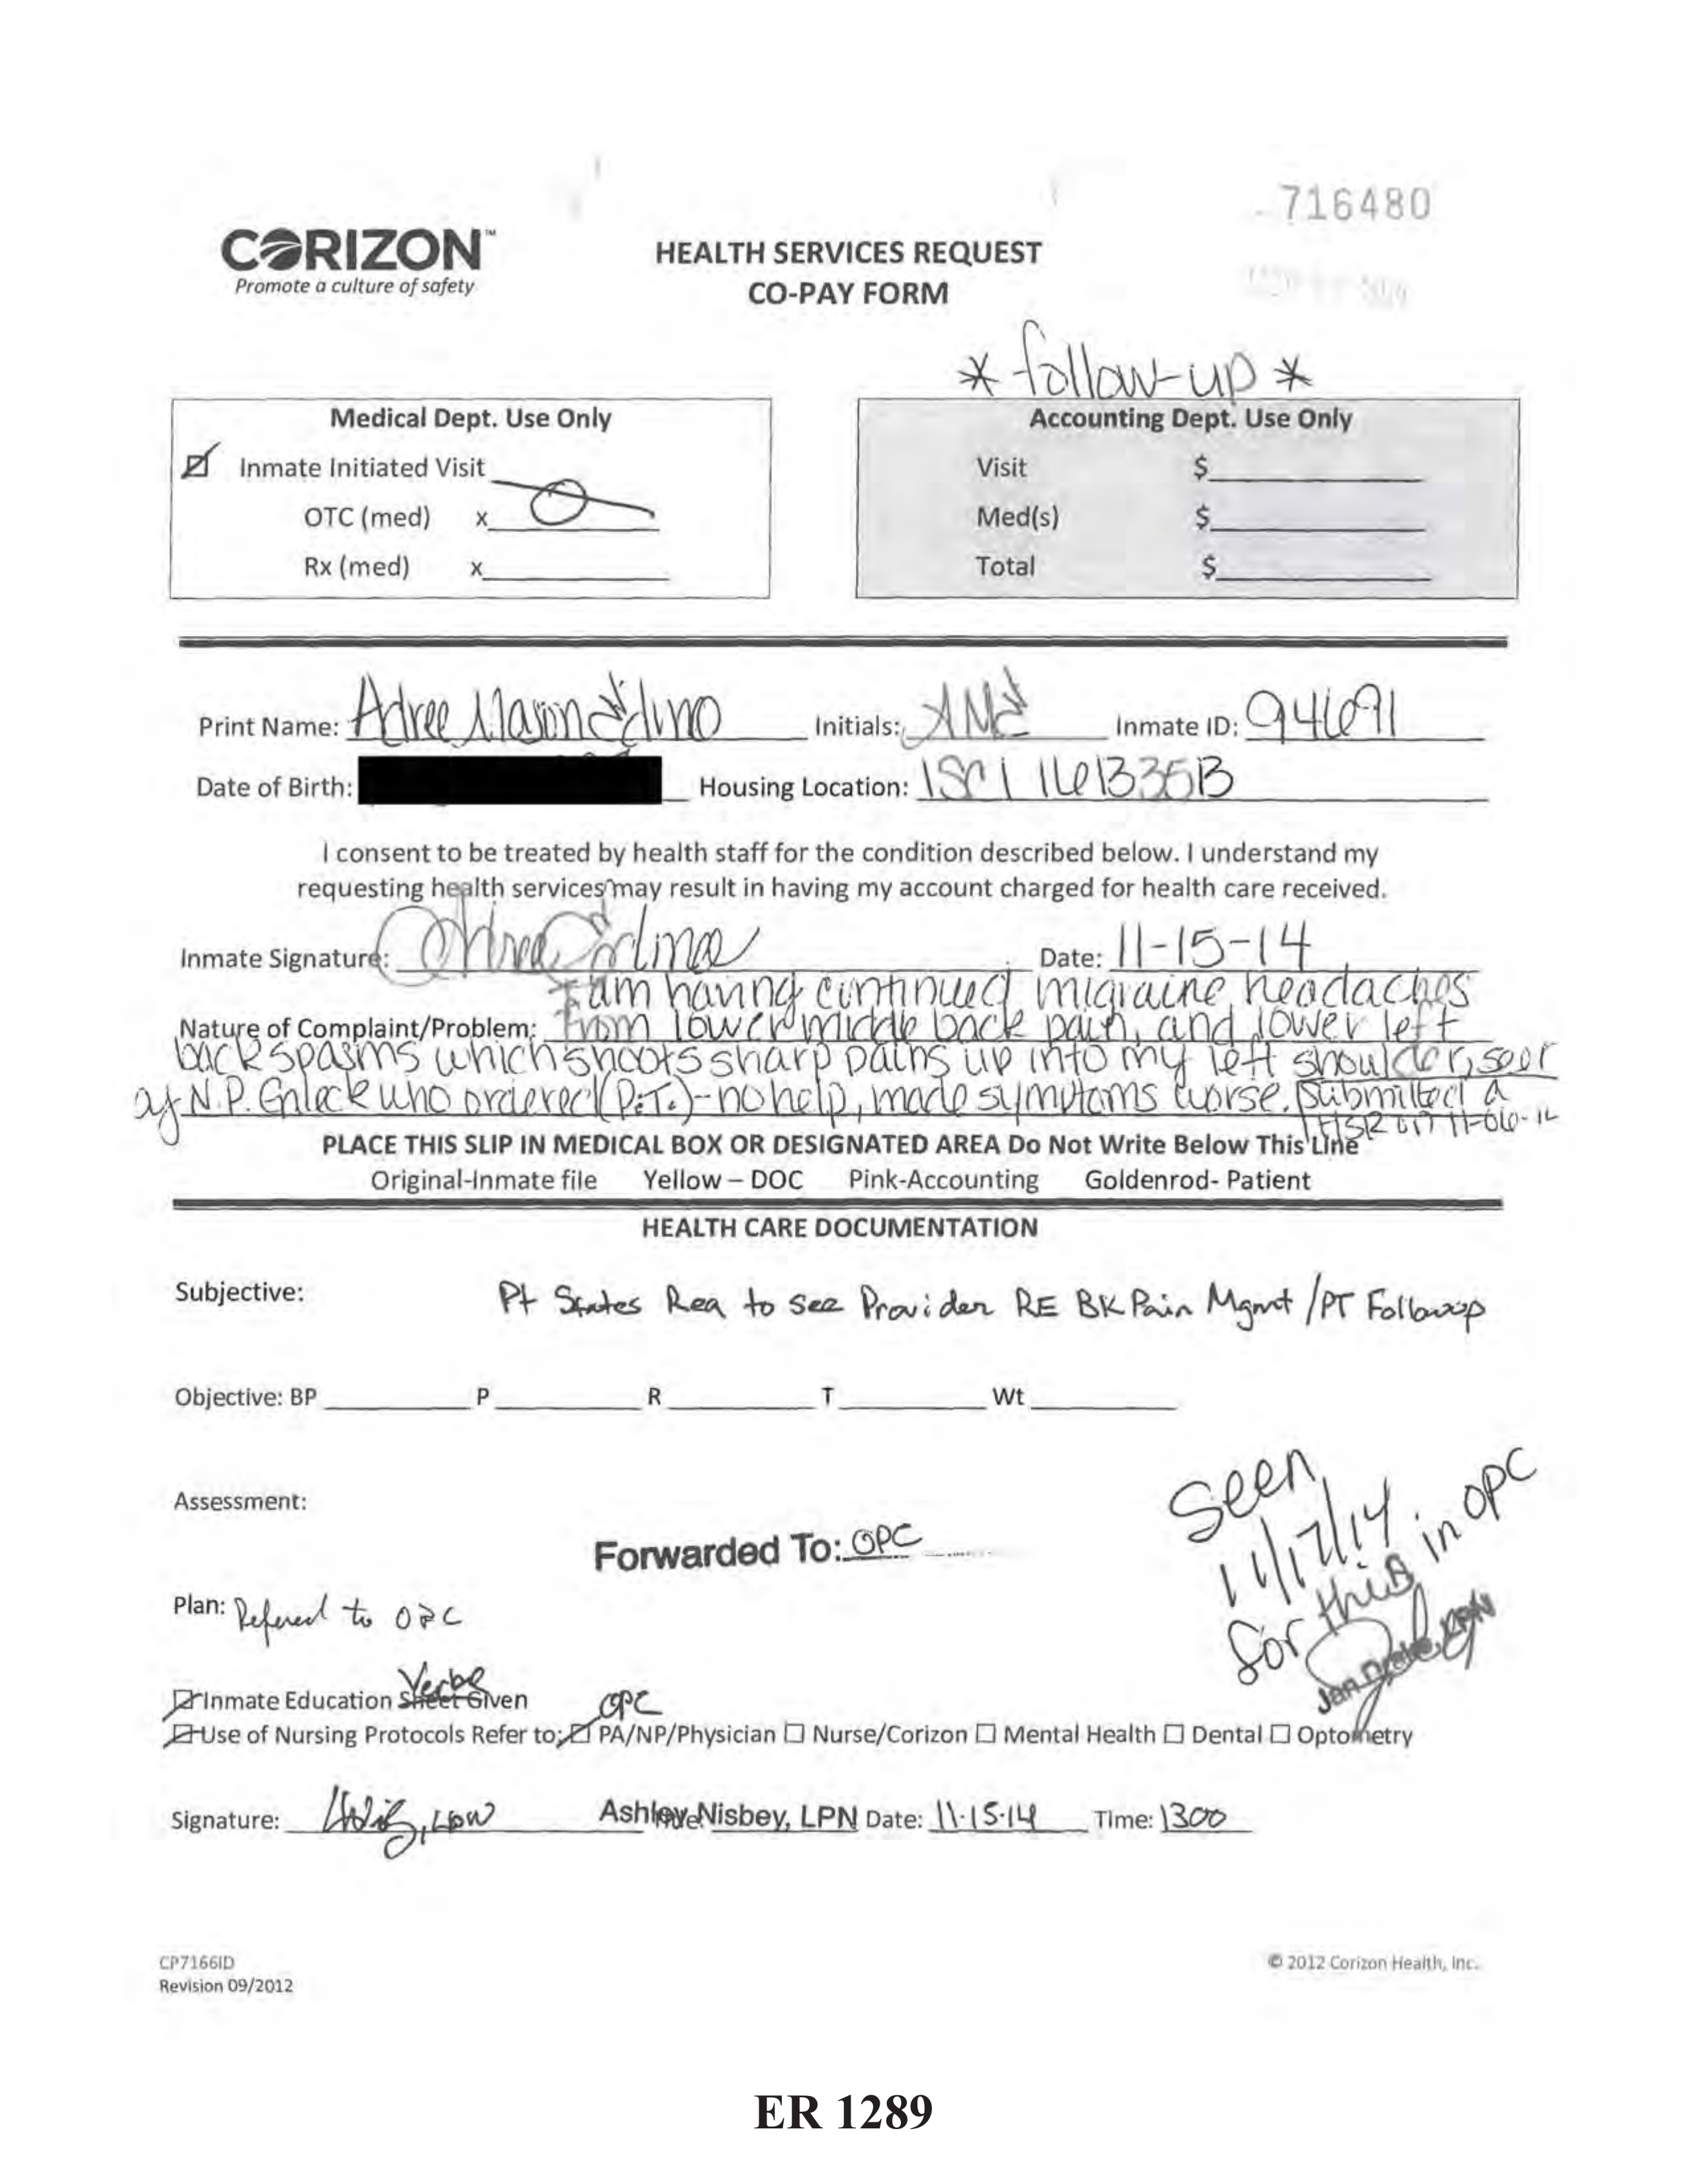 716480
CORIZON™
Promote a culture of safety
HEALTH SERVICES REQUEST
CO-PAY FORM
* follow-up *
Medical Dept. Use Only
Inmate Initiated Visit
OTC (med) x
Rx (med) x
Accounting Dept. Use Only
Visit $
Med(s) $
Total $
Print Name: Adree Edmo Initials: AME Inmate ID: 94691
Date of Birth: Housing Location: ISCI 16B35B
I consent to be treated by health staff for the condition described below. I understand my
requesting health services may result in having my account charged for health care received.
Inmate Signature: Date: 11-15-14
I am having continued migraine headaches
Nature of Complaint/Problem: from lower middle back pain, and lower left
back spasms which shoots sharp pains up into my left shoulder, seen
by N.P. who ordered (P.T.) - no help, made symtoms worse. Submitted a
HSR on 11-06-14
PLACE THIS SLIP IN MEDICAL BOX OR DESIGNATED AREA Do Not Write Below This Line
Original-Inmate file Yellow – DOC Pink-Accounting Goldenrod- Patient
HEALTH CARE DOCUMENTATION
Subjective: Pt States Req to see Provider RE BK Pain Mgmt / PT Followup
Objective: BP P R T Wt
Assessment:
Forwarded To: OPC
Seen
11/17/14
for this in OPC
Jan Drake, LPN
Plan: Refered to OPC
Verbal
Inmate Education Sheet Given
OPC
Use of Nursing Protocols Refer to: PA/NP/Physician Nurse/Corizon Mental Health Dental Optometry
Signature: LPN Ashley Nisbey, LPN Date: 11-15-14 Time: 1300
CP7166ID
Revision 09/2012
© 2012 Corizon Health, Inc.
ER 1289